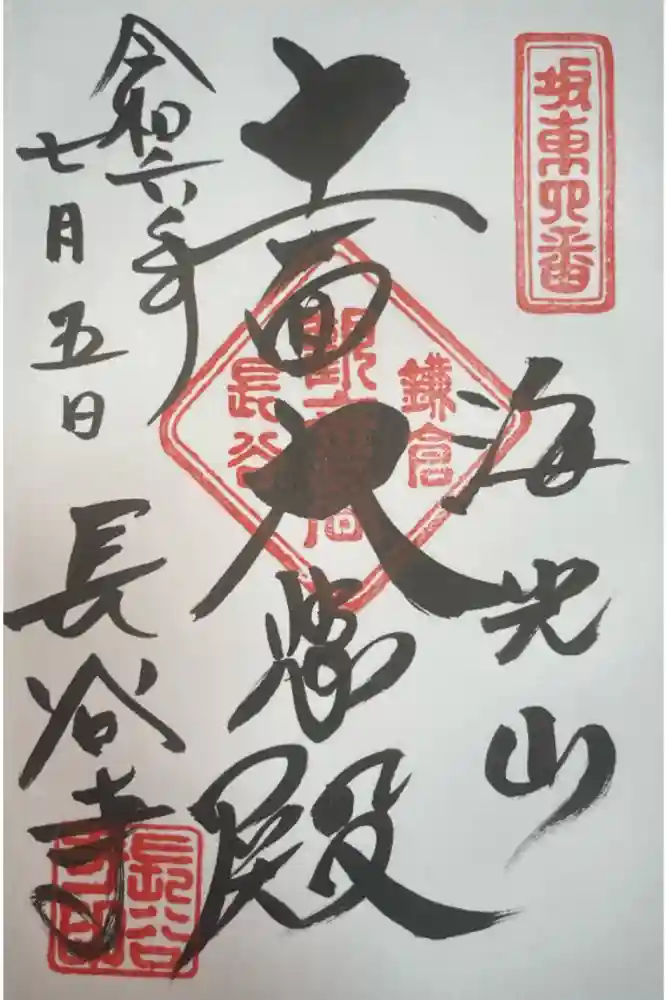 坂東四番
海光山
十一面大悲殿
鎌倉
観音
長谷
令和六年
七月五日
長谷寺